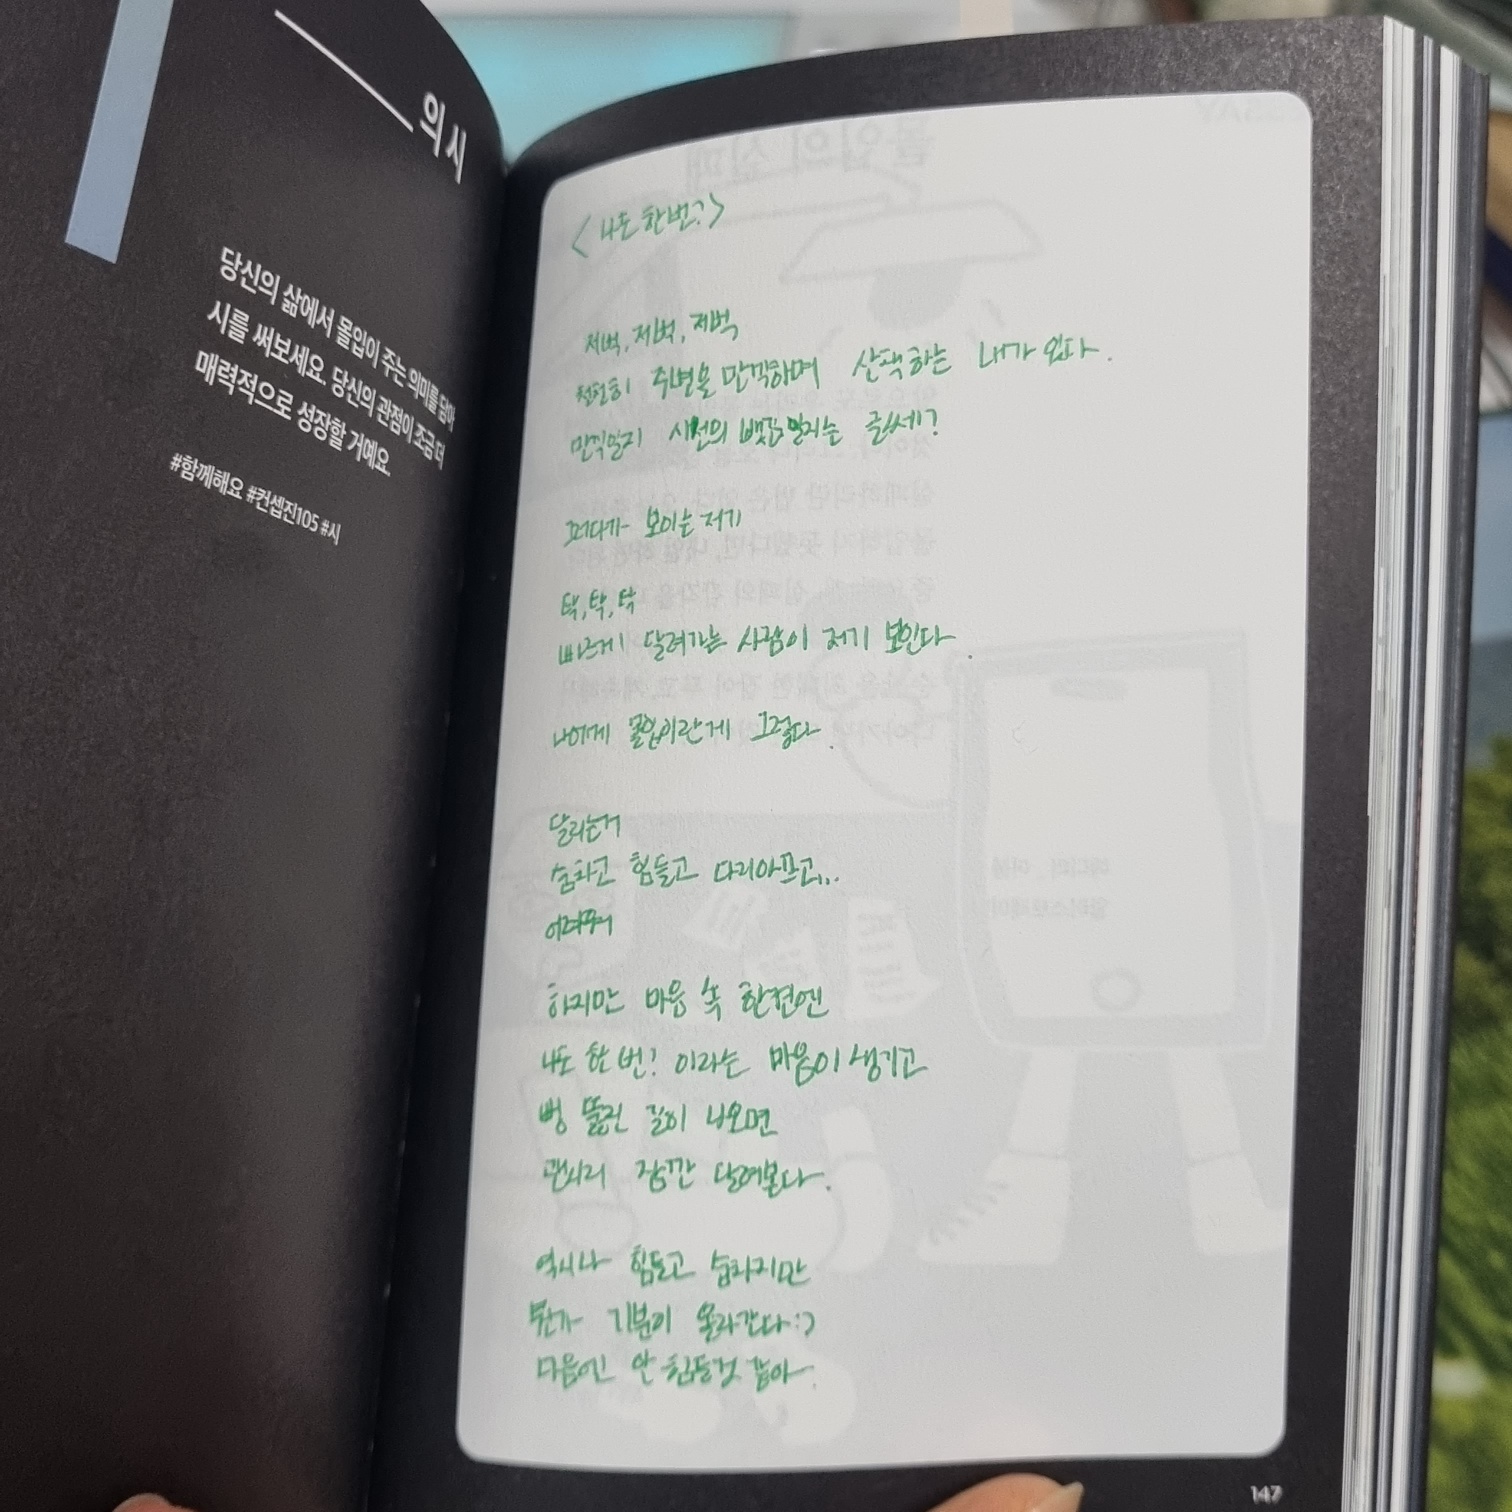 의 시
당신의 삶에서 몰입이 주는 의미를 담아
시를 써보세요. 당신의 관점이 조금 더
매력적으로 성장할 거예요.
#함께해요 #컨셉진105 #시
<나도 한번?>
저벅, 저벅, 저벅
천천히 주변을 만끽하며 산책하는 내가 있다.
만끽일지 시선의 뺏김일지는 글쎄?
그러다가 보이는 저기
탁, 탁, 탁
빠르게 달려가는 사람이 저기 보인다.
나에게 몰입이란게 그렇다.
달리는거
숨차고 힘들고 다리아프고...
어려워
하지만 마음 속 한켠엔
나도 한 번? 이라는 마음이 생기고
뻥 뚫린 길이 나오면
괜시리 잠깐 달려본다.
역시나 힘들고 숨차지만
뭔가 기분이 올라간다:)
다음엔 안 힘들것 같아.
147